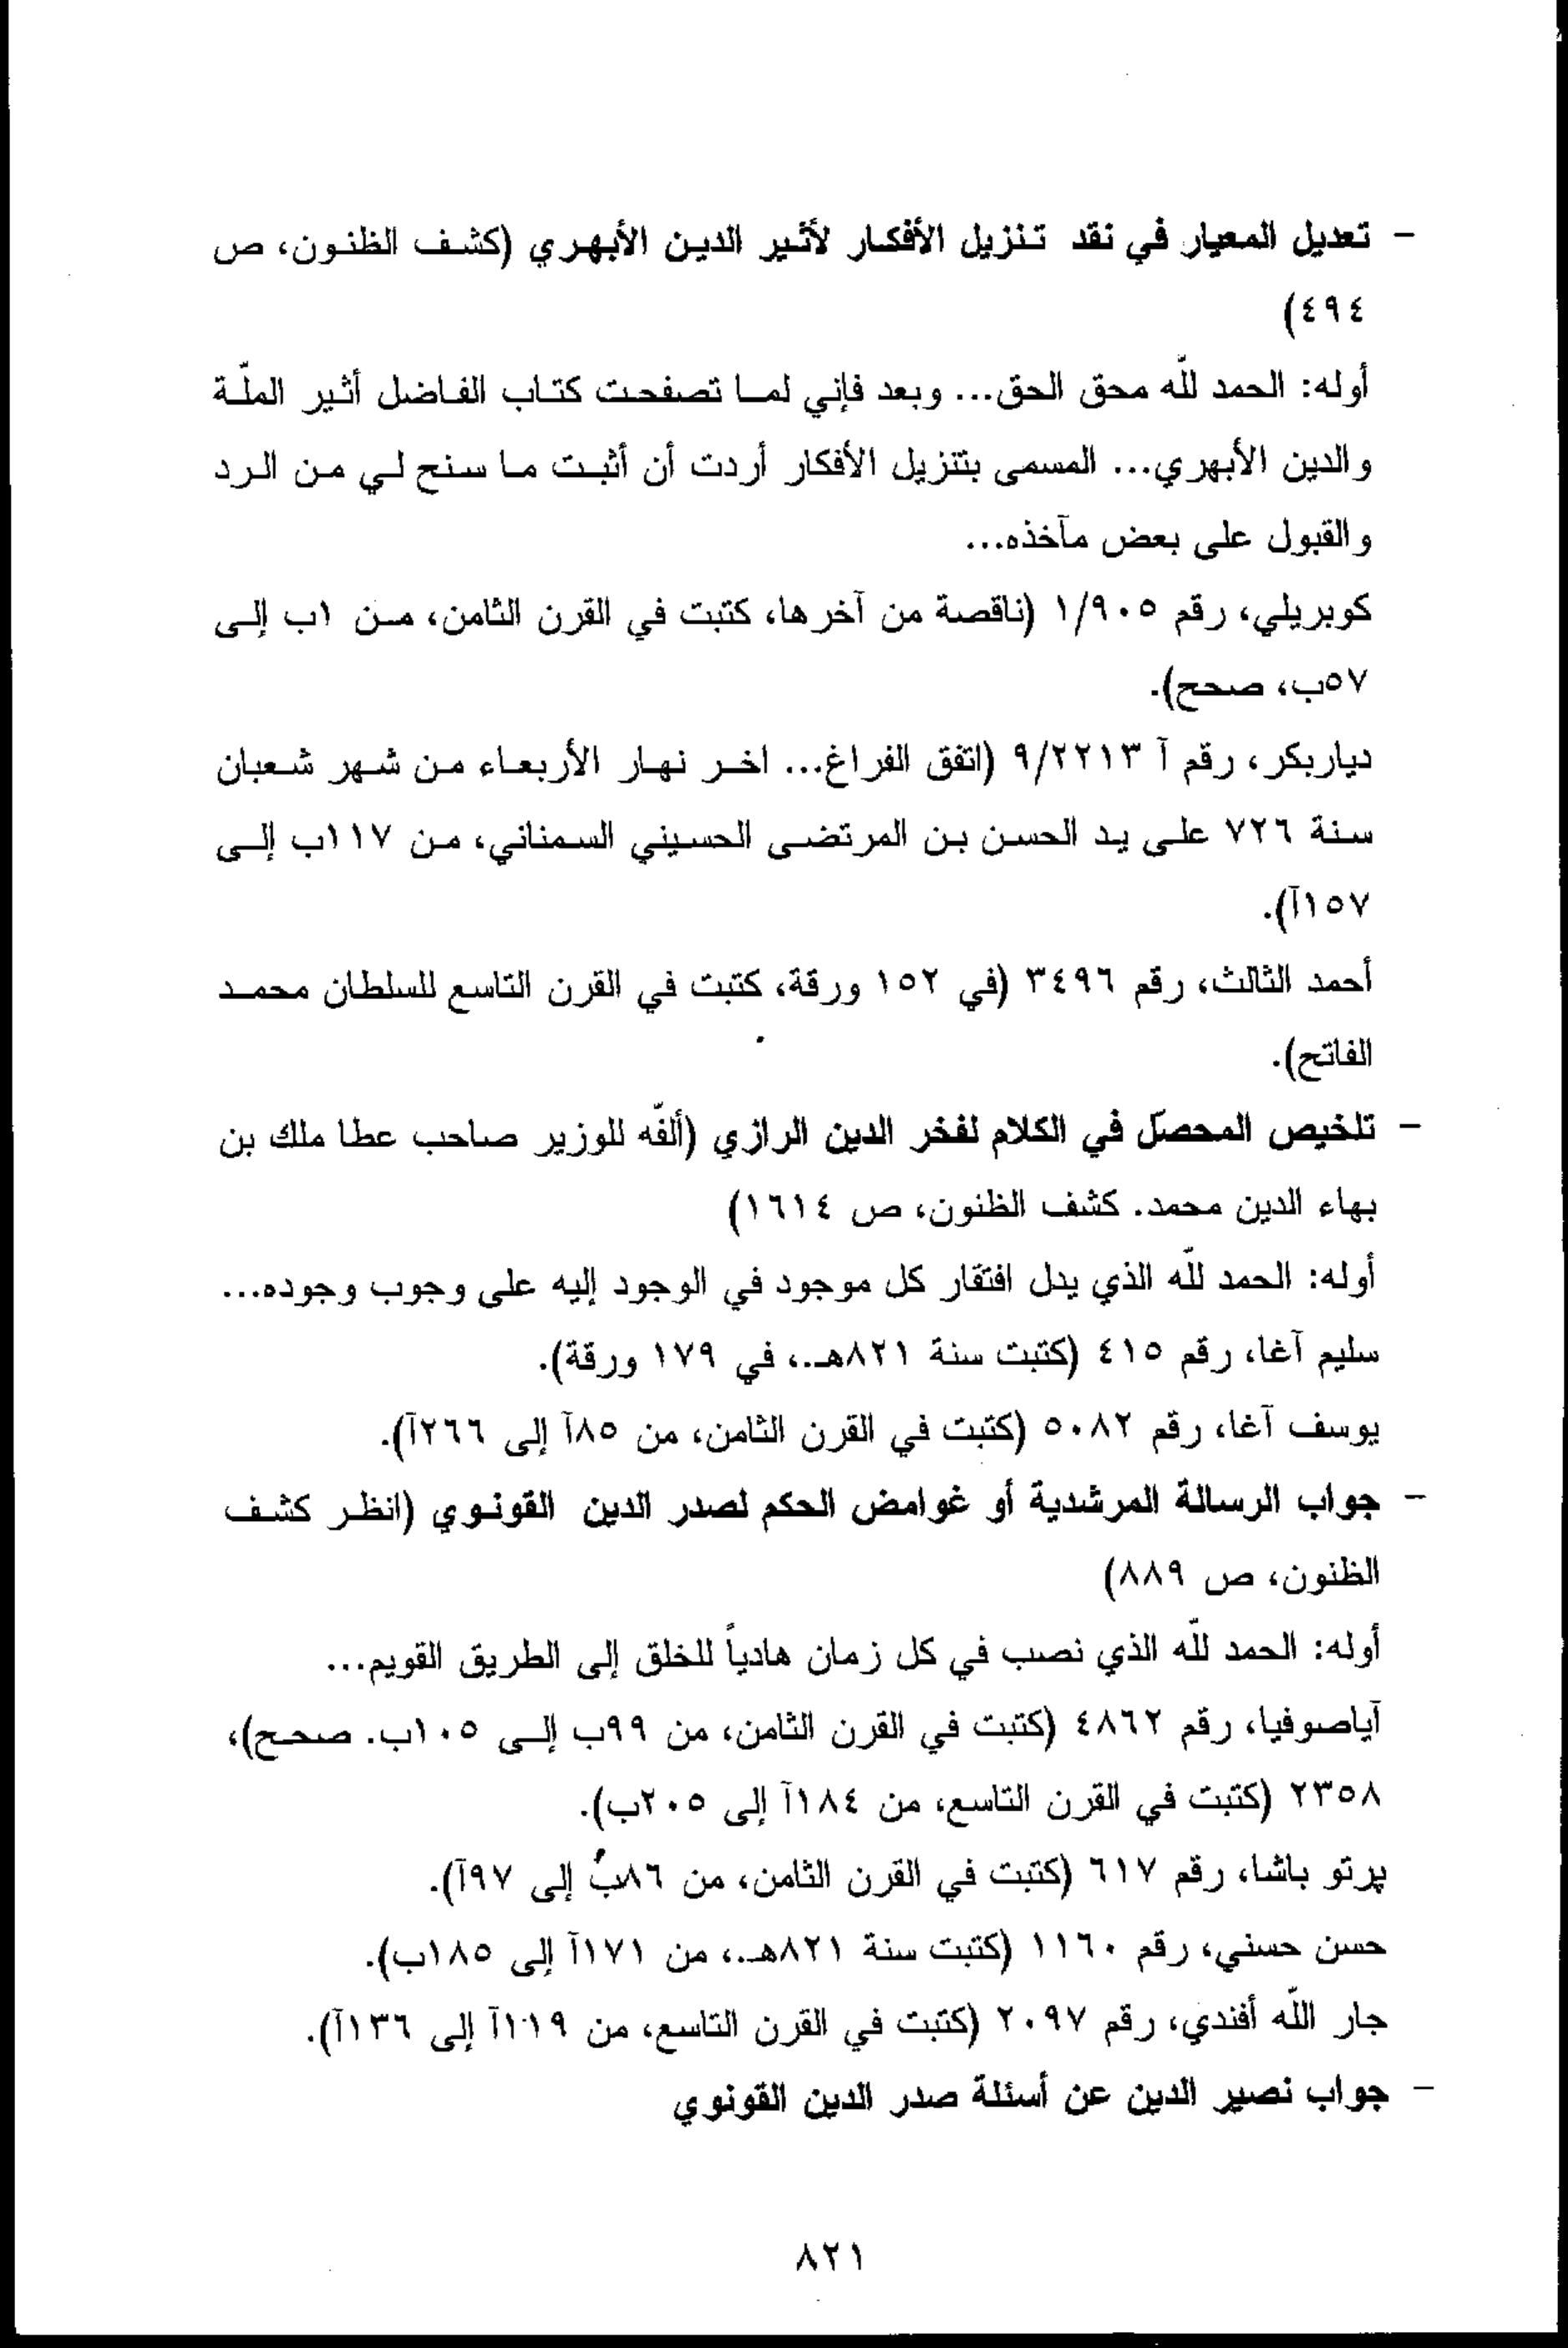 - تعديل المعيار في نقد تنزيل الأفكار لأثير الدين الأبهري (كشف الظنون، ص
٤٩٤)
أوله: الحمد للّه محق الحق... وبعد فإني لما تصفحت كتاب الفاضل أثير الملّة
والدين الأبهري... المسمى بتنزيل الأفكار أردت أن أثبت ما سنح لي من الرد
والقبول على بعض مآخذه...
كوبريلي، رقم ١/٩٠٥ (ناقصة من آخرها، كتبت في القرن الثامن، من ١ب إلى
٥٧ب، صحح).
دياربكر، رقم آ ٩/٢٢١٣ (اتفق الفراغ... اخر نهار الأربعاء من شهر شعبان
سنة ٧٢٦ على يد الحسن بن المرتضى الحسيني السمناني، من ١١٧ب إلى
١٥٧آ).
أحمد الثالث، رقم ٣٤٩٦ (في ١٥٢ ورقة، كتبت في القرن التاسع للسلطان محمد
الفاتح).
- تلخيص المحصّل في الكلام لفخر الدين الرازي (ألفّه للوزير صاحب عطا ملك بن
بهاء الدين محمد. كشف الظنون، ص ١٦١٤)
أوله: الحمد للّه الذي يدل افتقار كل موجود في الوجود إليه على وجوب وجوده...
سليم آغا، رقم ٤١٥ (كتبت سنة ٨٢١هـ.، في ١٧٩ ورقة).
يوسف آغا، رقم ٥٠٨٢ (كتبت في القرن الثامن، من ٨٥آ إلى ٢٦٦آ).
- جواب الرسالة المرشدية أو غوامض الحكم لصدر الدين القونوي (انظر كشف
الظنون، ص ٨٨٩)
أوله: الحمد للّه الذي نصب في كل زمان هادياً للخلق إلى الطريق القويم...
آياصوفيا، رقم ٤٨٦٢ (كتبت في القرن الثامن، من ٩٩ب إلى ١٠٥ب. صحح)،
٢٣٥٨ (كتبت في القرن التاسع، من ١٨٤آ إلى ٢٠٥ب).
پرتو باشا، رقم ٦١٧ (كتبت في القرن الثامن، من ٨٦ب إلى ٩٧آ).
حسن حسني، رقم ١١٦٠ (كتبت سنة ٨٢١هـ.، من ١٧١آ إلى ١٨٥ب).
جار اللّه أفندي، رقم ٢٠٩٧ (كتبت في القرن التاسع، من ١١٩آ إلى ١٣٦آ).
- جواب نصير الدين عن أسئلة صدر الدين القونوي
٨٢١